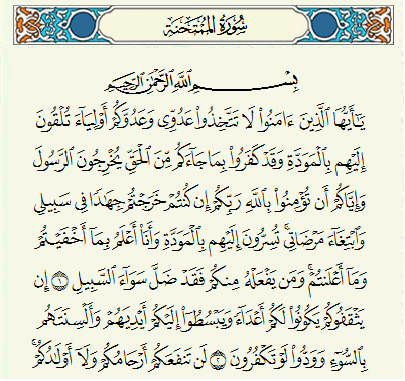 سُورَةُ الْمُمْتَحَنَةِ
بِسْمِ ٱللَّهِ ٱلرَّحْمَٰنِ ٱلرَّحِيمِ
يَٰٓأَيُّهَا ٱلَّذِينَ ءَامَنُوا۟ لَا تَتَّخِذُوا۟ عَدُوِّى وَعَدُوَّكُمْ أَوْلِيَآءَ تُلْقُونَ
إِلَيْهِم بِٱلْمَوَدَّةِ وَقَدْ كَفَرُوا۟ بِمَا جَآءَكُم مِّنَ ٱلْحَقِّ يُخْرِجُونَ ٱلرَّسُولَ
وَإِيَّاكُمْ أَن تُؤْمِنُوا۟ بِٱللَّهِ رَبِّكُمْ إِن كُنتُمْ خَرَجْتُمْ جِهَٰدًا فِى سَبِيلِى
وَٱبْتِغَآءَ مَرْضَاتِى ۚ تُسِرُّونَ إِلَيْهِم بِٱلْمَوَدَّةِ وَأَنَا۠ أَعْلَمُ بِمَآ أَخْفَيْتُمْ
وَمَآ أَعْلَنتُمْ ۚ وَمَن يَفْعَلْهُ مِنكُمْ فَقَدْ ضَلَّ سَوَآءَ ٱلسَّبِيلِ ١ إِن
يَثْقَفُوكُمْ يَكُونُوا۟ لَكُمْ أَعْدَآءً وَيَبْسُطُوٓا۟ إِلَيْكُمْ أَيْدِيَهُمْ وَأَلْسِنَتَهُم
بِٱلسُّوٓءِ وَوَدُّوا۟ لَوْ تَكْفُرُونَ ٢ لَن تَنفَعَكُمْ أَرْحَامُكُمْ وَلَآ أَوْلَٰدُكُمْ ۚ